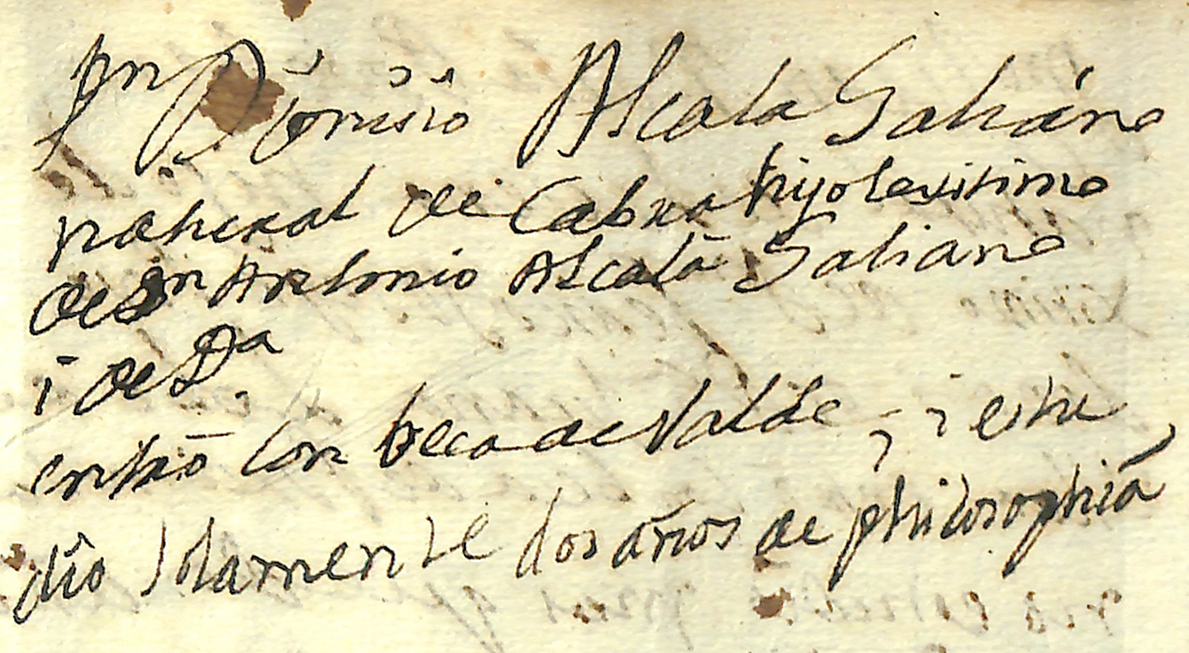 Dn Dionisio Alcala Galiáno
natural de Cabra hijo lexitimo
de Dn Antonio Alcalá Galiano
i de Da.
entró con beca de Valde; i estu
dió solamente dos años de philosophiá,